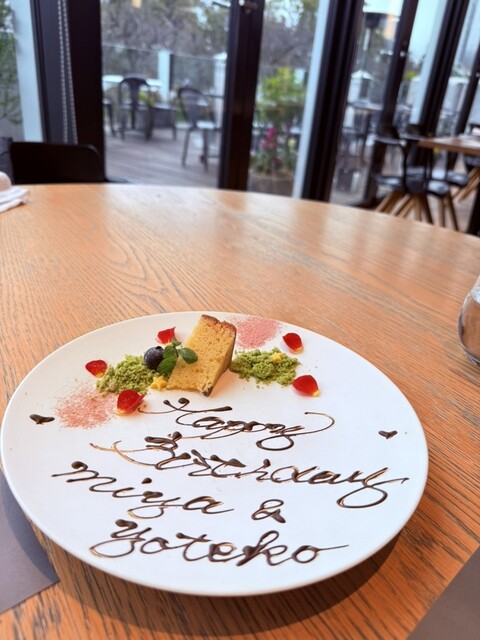 Happy
Birthday
miya &
yoteko